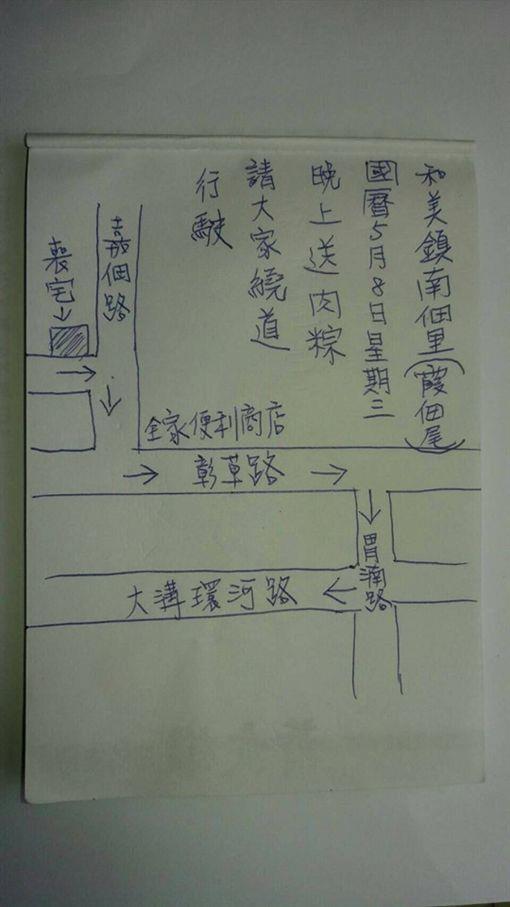 和美鎮南佃里(莀佃尾)
國曆5月8日星期三
晚上送肉粽
請大家繞道
行駛
嘉佃路
喪宅
全家便利商店
彰草路
胃湳路
大溝環河路